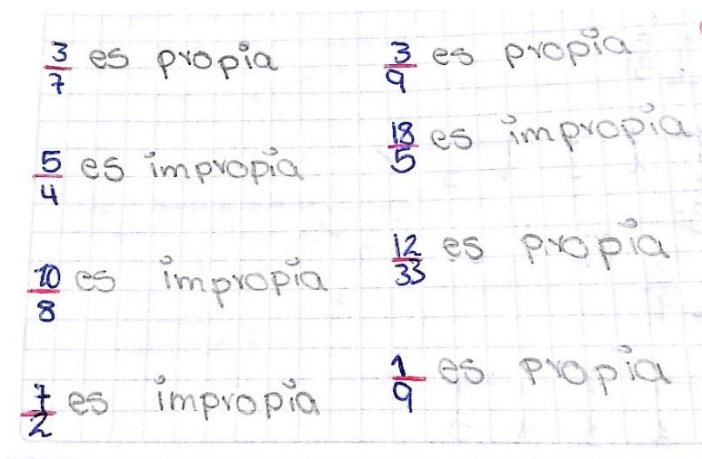 3/7 es propia
5/4 es impropia
10/8 es impropia
7/2 es impropia
3/9 es propia
18/5 es impropia
12/33 es propia
1/9 es propia